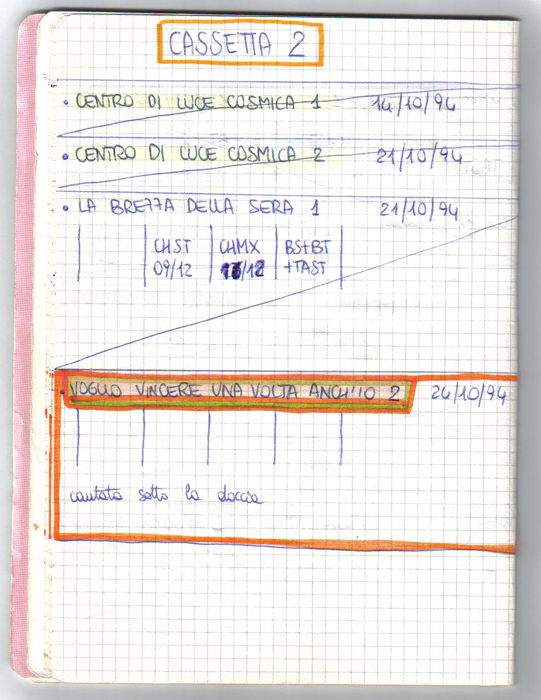 CASSETTA 2
• CENTRO DI LUCE COSMICA 1 14/10/94
• CENTRO DI LUCE COSMICA 2 21/10/94
• LA BREZZA DELLA SERA 1 21/10/94
CHST CHMX BS+BT
09/12 /12 +TAST
• VOGLIO VINCERE UNA VOLTA ANCH'IO 2 24/10/94
cantata sotto la doccia